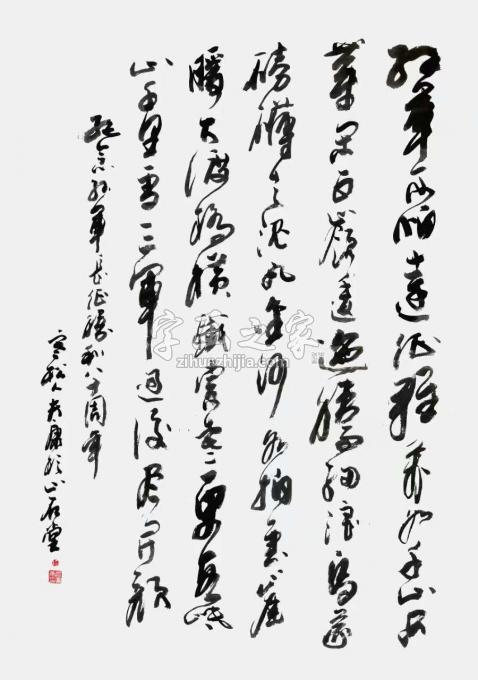 紅軍不怕遠征難萬水千山只
等閑五嶺逶迤騰細浪烏蒙
磅礴走泥丸金沙水拍雲崖
暖大渡橋橫鐵索寒更喜岷
山千里雪三軍過後盡開顏
紀念紅軍長征勝利八十周年
石堂
字魂之家
zihunzhijia.com